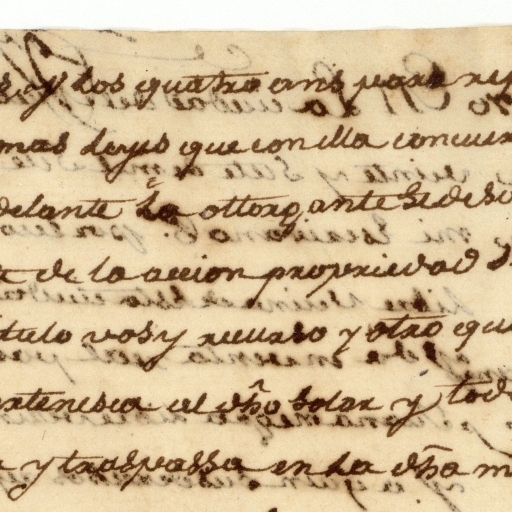 s y los quatro ans para rep
mas leyes que con ella concuer
delante la ottorgante se desi
de la accion propriedad s
titulo vos y recurso y otro qu
ertenesca al dho solar y todo
a y traspassa en la dha m